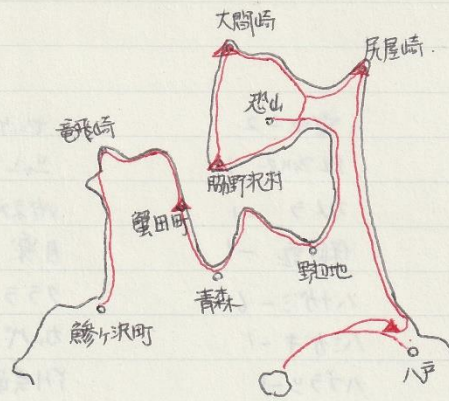 大間崎
尻屋崎
恐山
竜飛崎
脇野沢村
蟹田町
野辺地
青森
鰺ヶ沢町
八戸